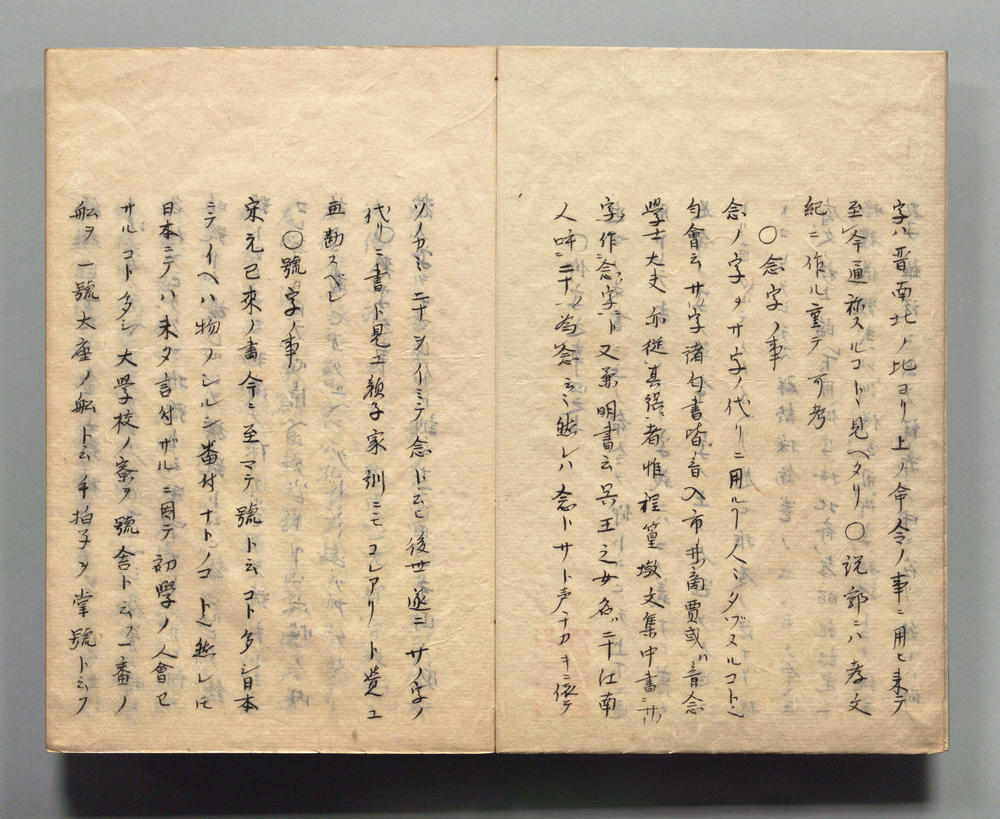 字ハ晋南北ノ比ヨリ上ノ命令ノ事ニ用ヒ来テ
至今逼称スルコト見ヘタリ〇説郛ニハ孝文
紀ニ作ル重テ可考
〇念字ノ事
念ノ字ヲ廿字ノ代リニ用ル人ミタヅスルコト
句會云廿字諸句書皆音入市井商賈或ハ音念
學士大夫亦従其誤者惟程篁墩文集中書廿
字作念字ト又兼明書云呉王之女名二十江南
人呼二十為念云然レハ念ト廿ト声チカキニ依テ
二十シイミテ念ト云後世遂ニ廿ノ字ノ
代リニ書ト見ユ顔子家訓ニモコレアリト覚ユ
且勘スヘシ
〇號字ノ事
宋元已来ノ書今ニ至マテ號ト云コト多シ日本
ニテイヘハ物ノシルシ番付ナトノコト然レ𪜈
日本ニテハ未タ言付ザルニ因テ初學ノ人會已
サルコト多シ大學校ノ寮ヲ號舎ト云一番ノ
船ヲ一號大座ノ船ト云手拍子ヲ掌號ト云フ